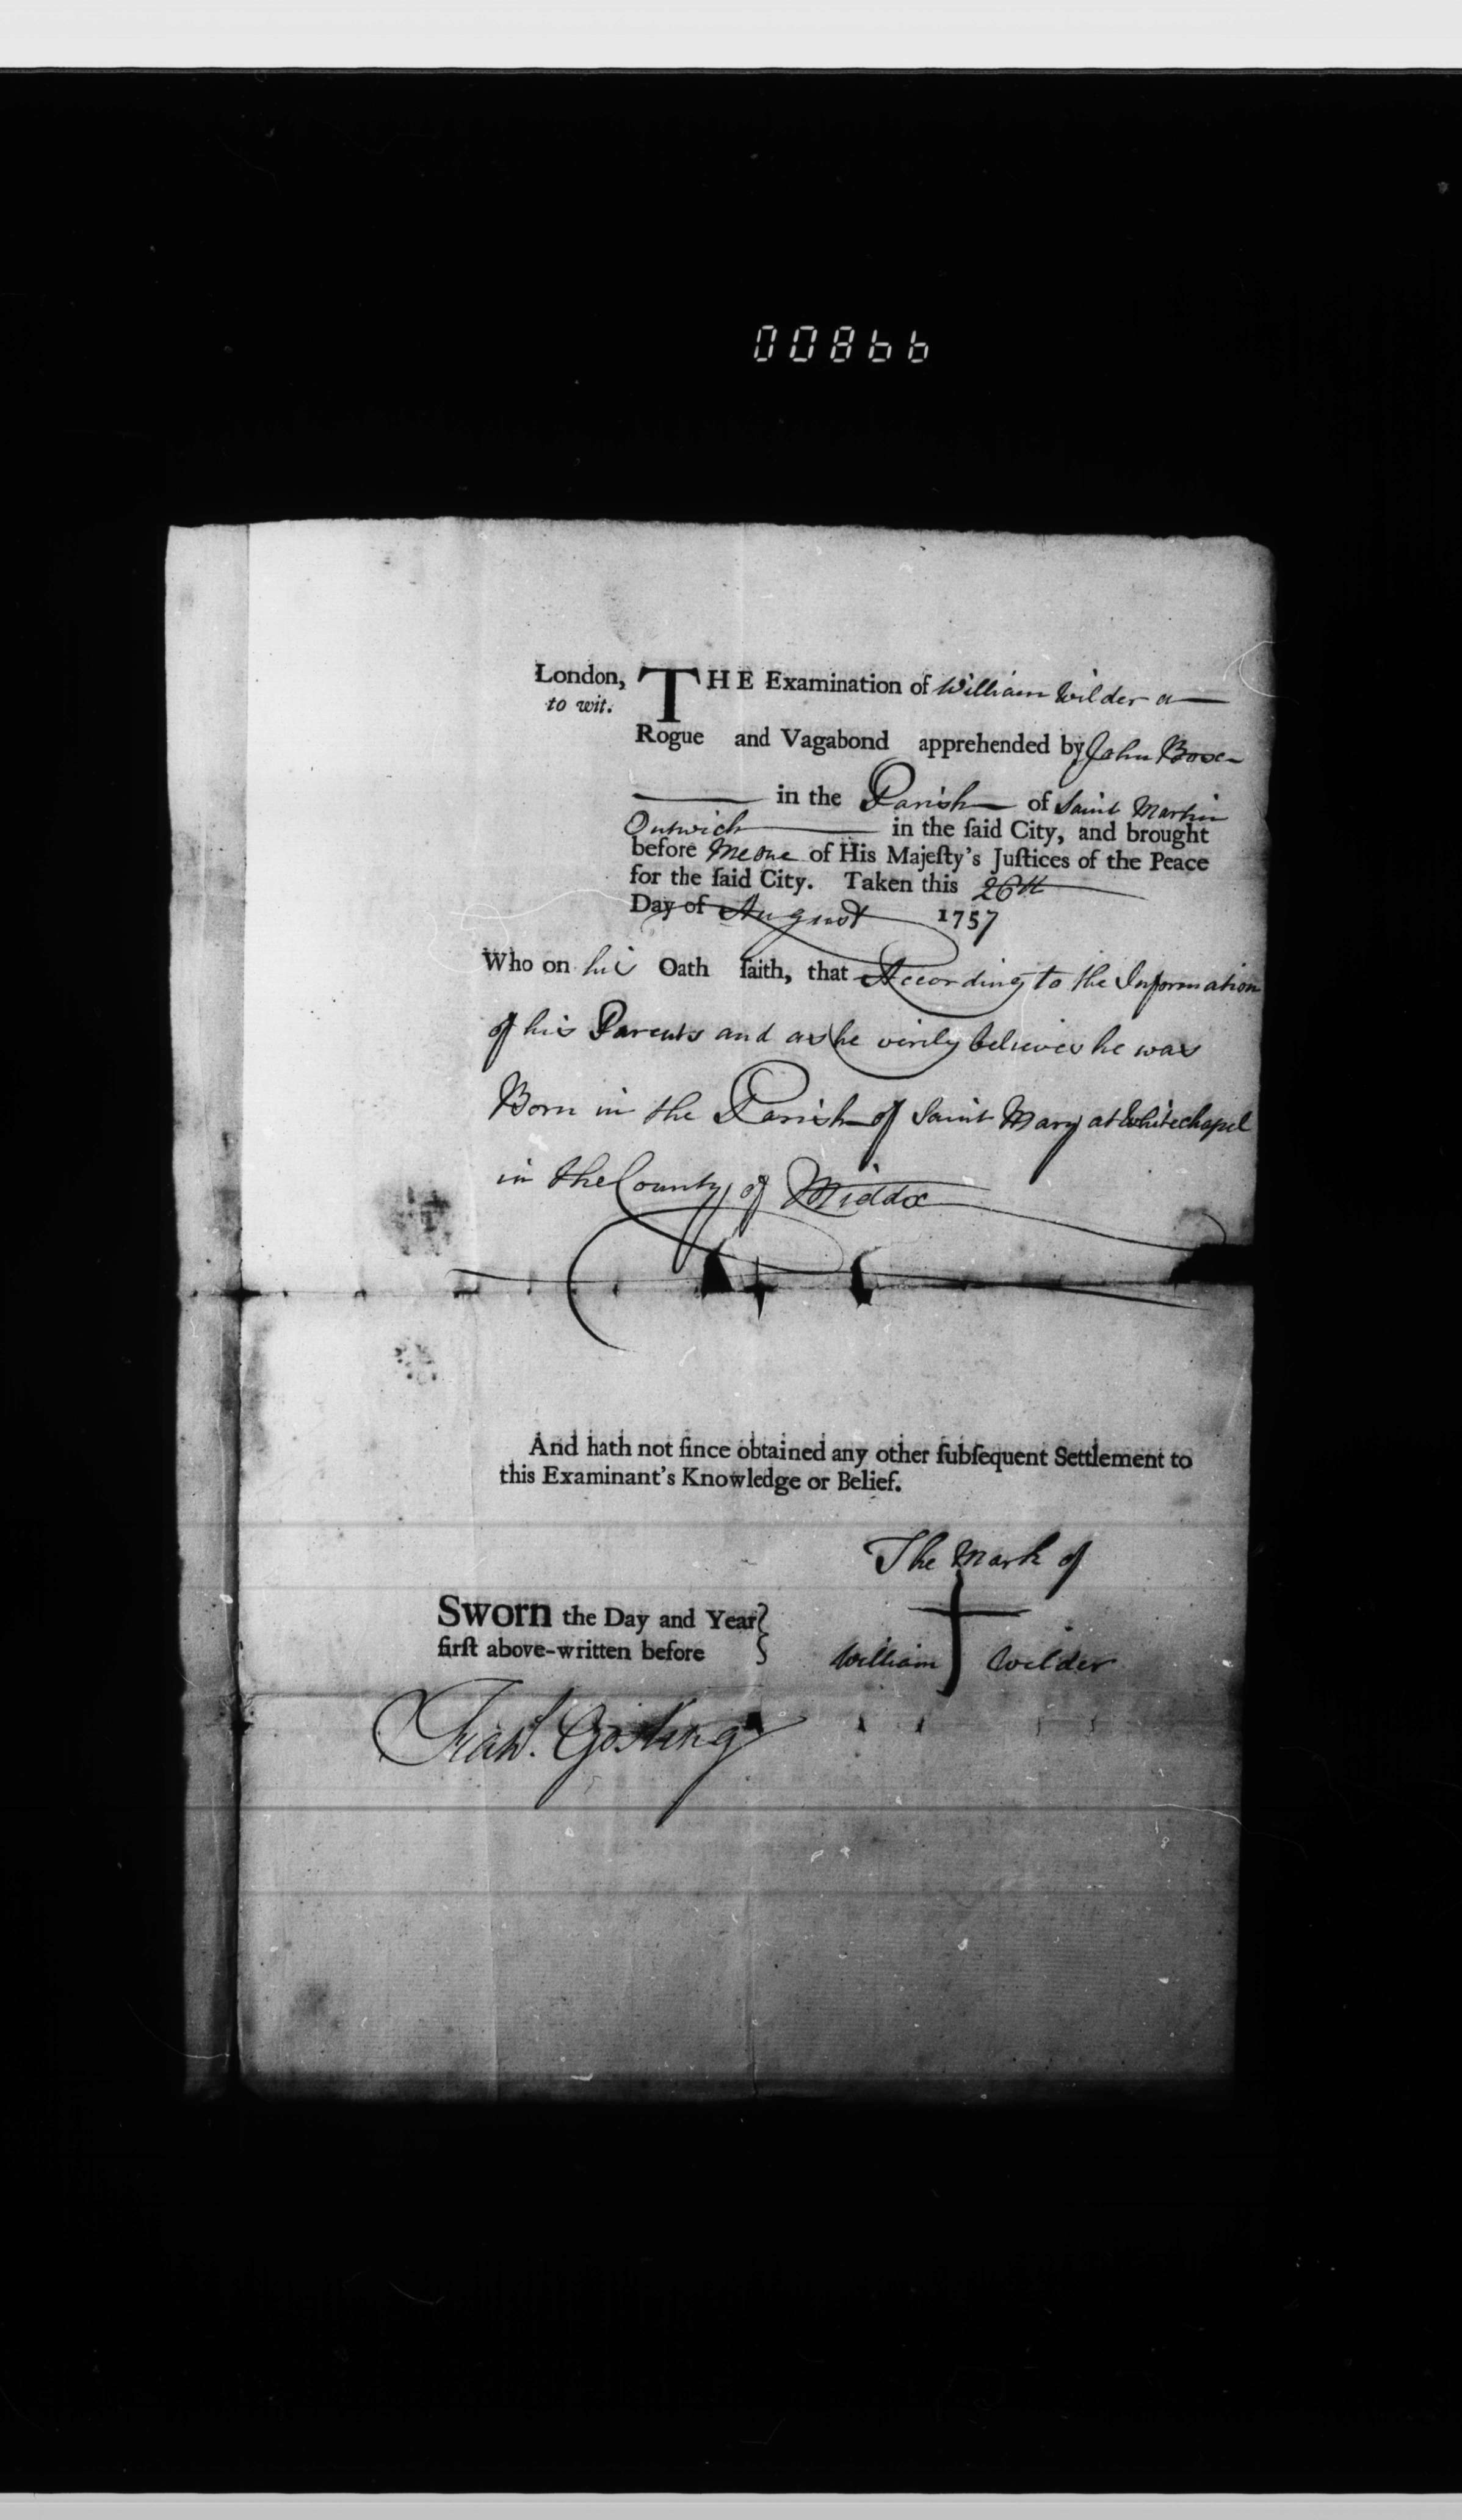 00866
London, THE Examination of William Wilder a
to wit.
Rogue and Vagabond apprehended by John Boxe
in the Parish of Saint Martin
Outwich in the ſaid City, and brought
before me one of His Majeſty's Juſtices of the Peace
for the ſaid City. Taken this 26th
Day of August 1757
Who on his Oath ſaith, that According to the Information
of his Parents and as he verily believes he was
Born in the Parish of Saint Mary at Whitechapel
in the County of Middx
And hath not ſince obtained any other ſubſequent Settlement to
this Examinant's Knowledge or Belief.
The Mark of
Sworn the Day and Year
firſt above-written before
William Wilder
Frans. Gosling